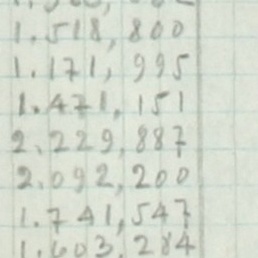 1.518,800
1.171,995
1.471,151
2.229,887
2.092,200
1.741,547
1.603,284